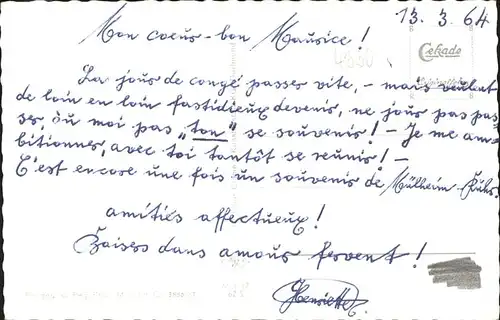 13. 3. 64
Mon coeurs-bon Maurice!
Cekade
La jours de congé passer vite, - mais veulent
de loin en loin fastidieux devenir, ne jour pas pas-
ses où moi pas „ton" se souvenirs! - Je me am-
bitionner, avec toi tantôt se reunis! -
C'est encore une fois un souvenirs de Mülheim-Ruhr.
amitiés affectueux!
Baisers dans amour fervent!
Henriette